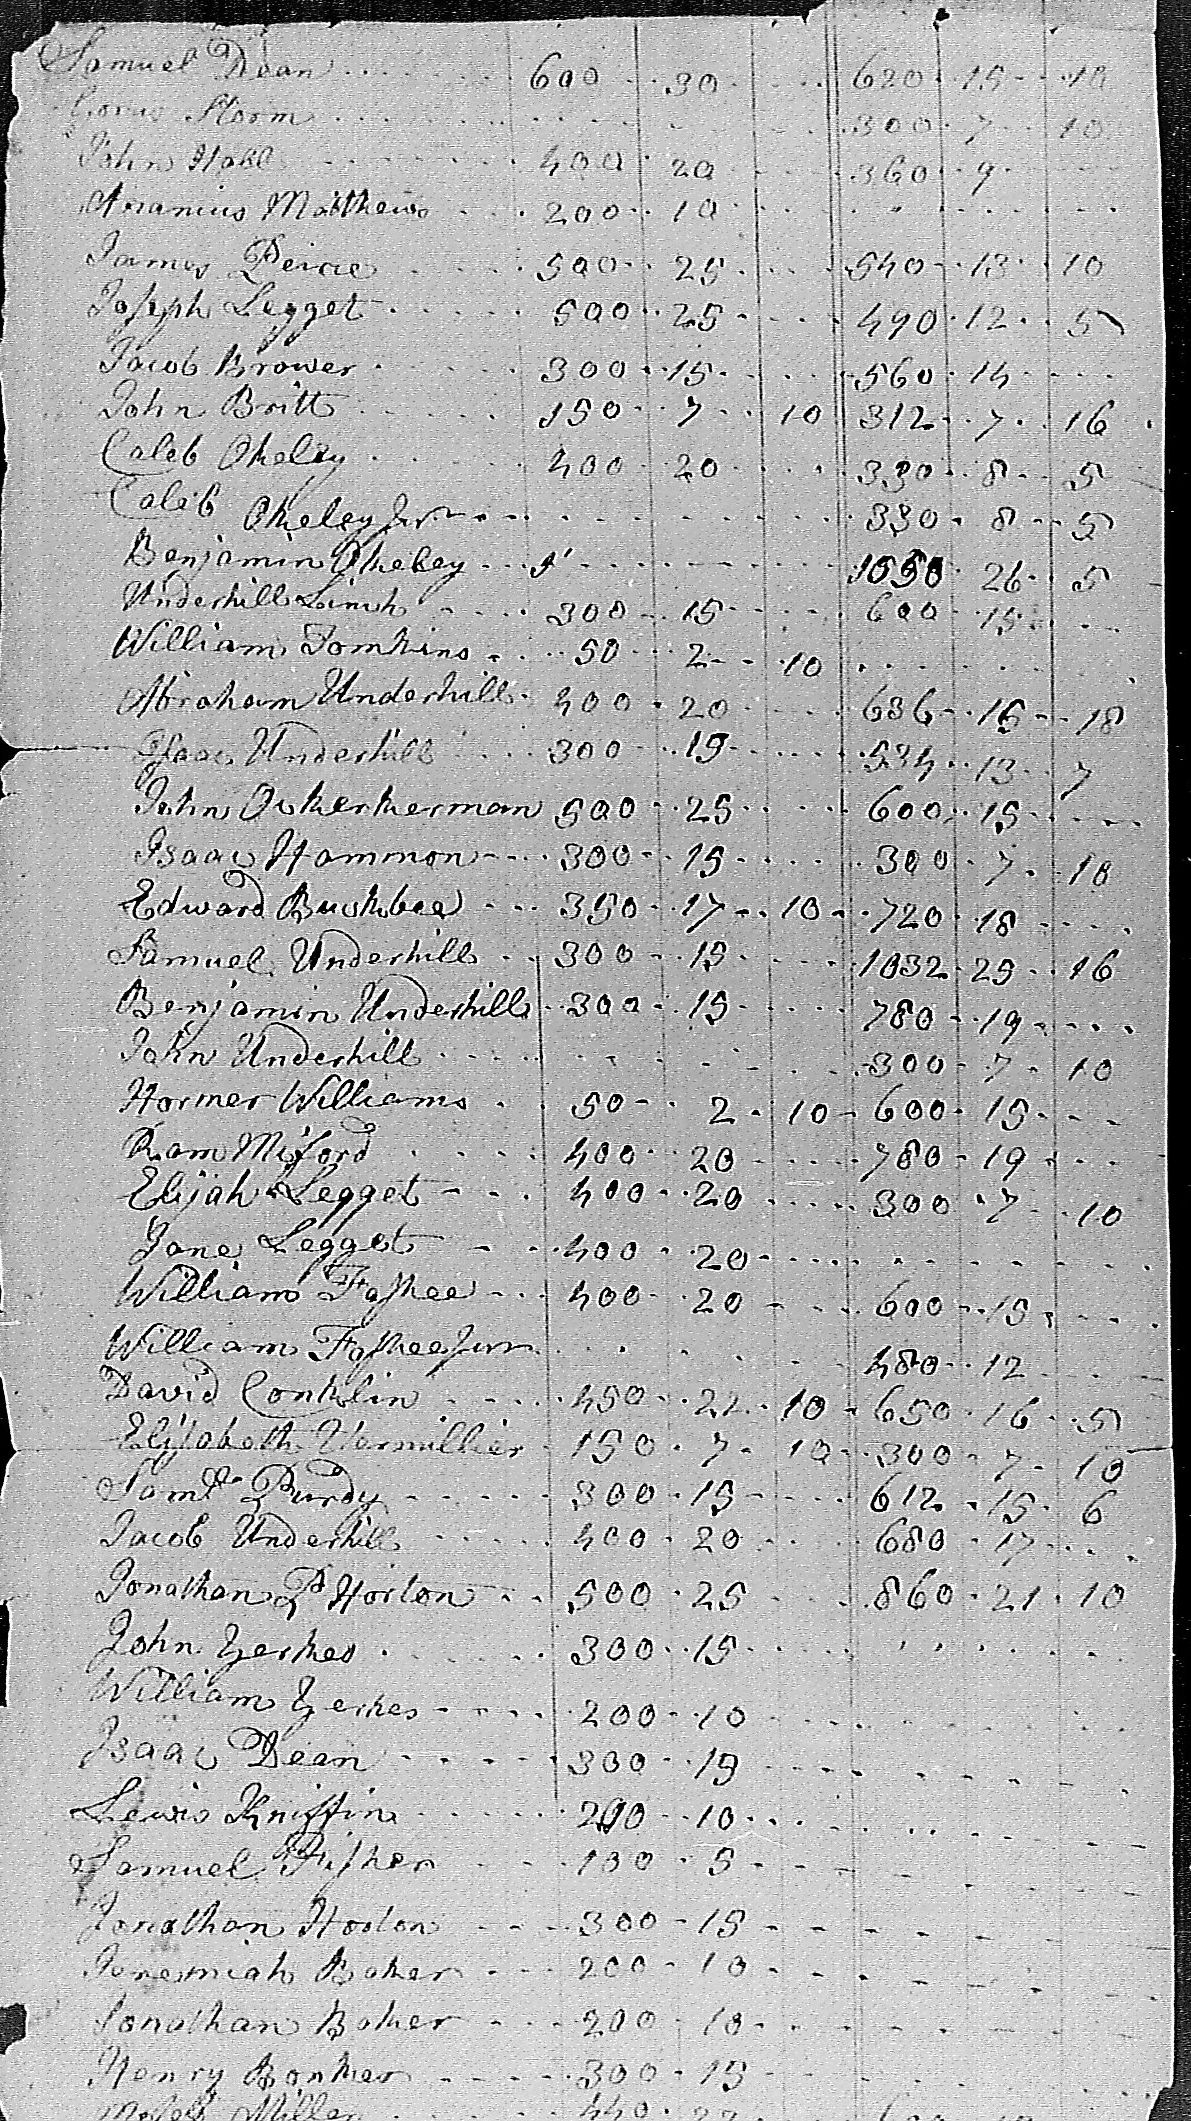 Samuel Dean 600 30 620 15 10
Storm 300 7 10
John Hall 400 20 360 9
Ananius Matthews 200 10
James Peirce 500 25 540 13 10
Joseph Legget 500 25 490 12 5
Jacob Brower 300 15 560 14
John Britt 150 7 10 312 7 16
Caleb Okeley 400 20 330 8 5
Caleb Okeley Junr 330 8 5
Benjamin Okeley 1050 26 5
Underhill Linch 300 15 600 15
William Tomkins 50 2 10
Abraham Underhill 400 20 636 15 18
Isaac Underhill 300 15 534 13 7
John Ookerkerman 500 25 600 15
Isaac Hammon 300 15 300 7 10
Edward Buckbee 350 17 10 720 18
Samuel Underhill 300 15 1032 25 16
Benjamin Underhill 300 15 780 19
John Underhill 300 7 10
Hormer Williams 50 2 10 600 15
Ram Miford 400 20 780 19
Elijah Legget 400 20 300 7 10
Jane Legget 400 20
William Foshee 400 20 600 15
William Foshee Junr 480 12
David Conklin 450 22 10 650 16 5
Elisabeth Vermillier 150 7 10 300 7 10
Saml Purdy 300 15 612 15 6
Jacob Underhill 400 20 680 17
Jonathan P Horton 500 25 860 21 10
John Yerkes 300 15
William Yerkes 200 10
Isaac Dean 300 15
Lewis Kniffin 200 10
Samuel Fisher 100 5
Jonathan Horton 300 15
Jeremiah Baker 200 10
Jonathan Baker 200 10
Henry Bonker 300 15
Miller 440 22